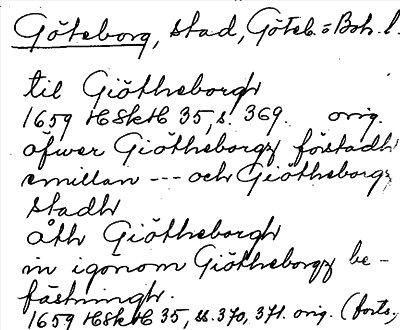 Göteborg, stad, Göteb.=Boh. l.
til Giötheborgh
1659 HSkH 35, s. 369. orig.
öfwer Giötheborgz förstadh
emillan --- och Giötheborgz
stadh
åth Giötheborgh
in igönom Giötheborgz be-
fästningh.
1659 HSkH 35, ss. 370, 371. orig. (forts.)